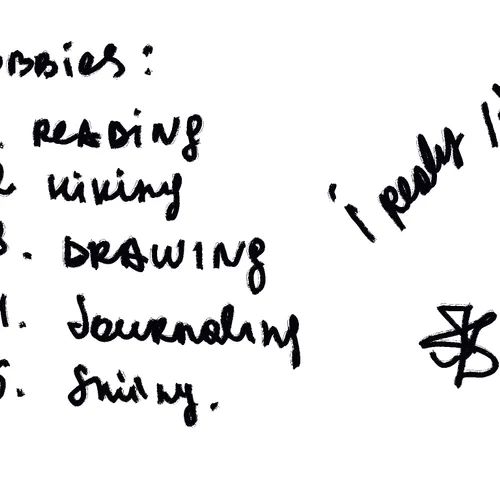 obbies:
. READING
2 Hiking
3. DRAWING
4. Journaling
5. Smiling.
i really li